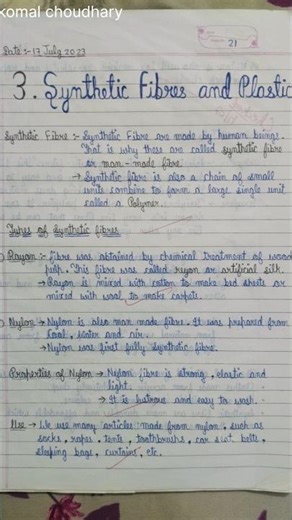 komal choudhary
21
Date :- 17 July 2023
3. Synthetic Fibres and Plastic
Synthetic Fibre :- Synthetic Fibre are made by human beings.
That is why these are called synthetic fibre
or man-made fibre.
→ Synthetic fibre is also a chain of small
units combine to form a large single unit
called a Polymer.
Types of Synthetic fibres
Rayon :- Fibre was obtained by chemical treatment of wood
pulp. This fibre was called rayon or artificial silk.
→ Rayon is mixed with cotton to make bed sheets or
mixed with wool to make carpets.
Nylon → Nylon is also man made fibre. It was prepared from
Coal, water and air.
→ Nylon was first fully synthetic fibre.
Properties of Nylon → Nylon fibre is strong, elastic and
light.
→ It is lustrous and easy to wash.
Use → We use many articles made from nylon, such as
socks, ropes, tents, toothbrushs, car seat, belts,
sleeping bags, curtains, etc.